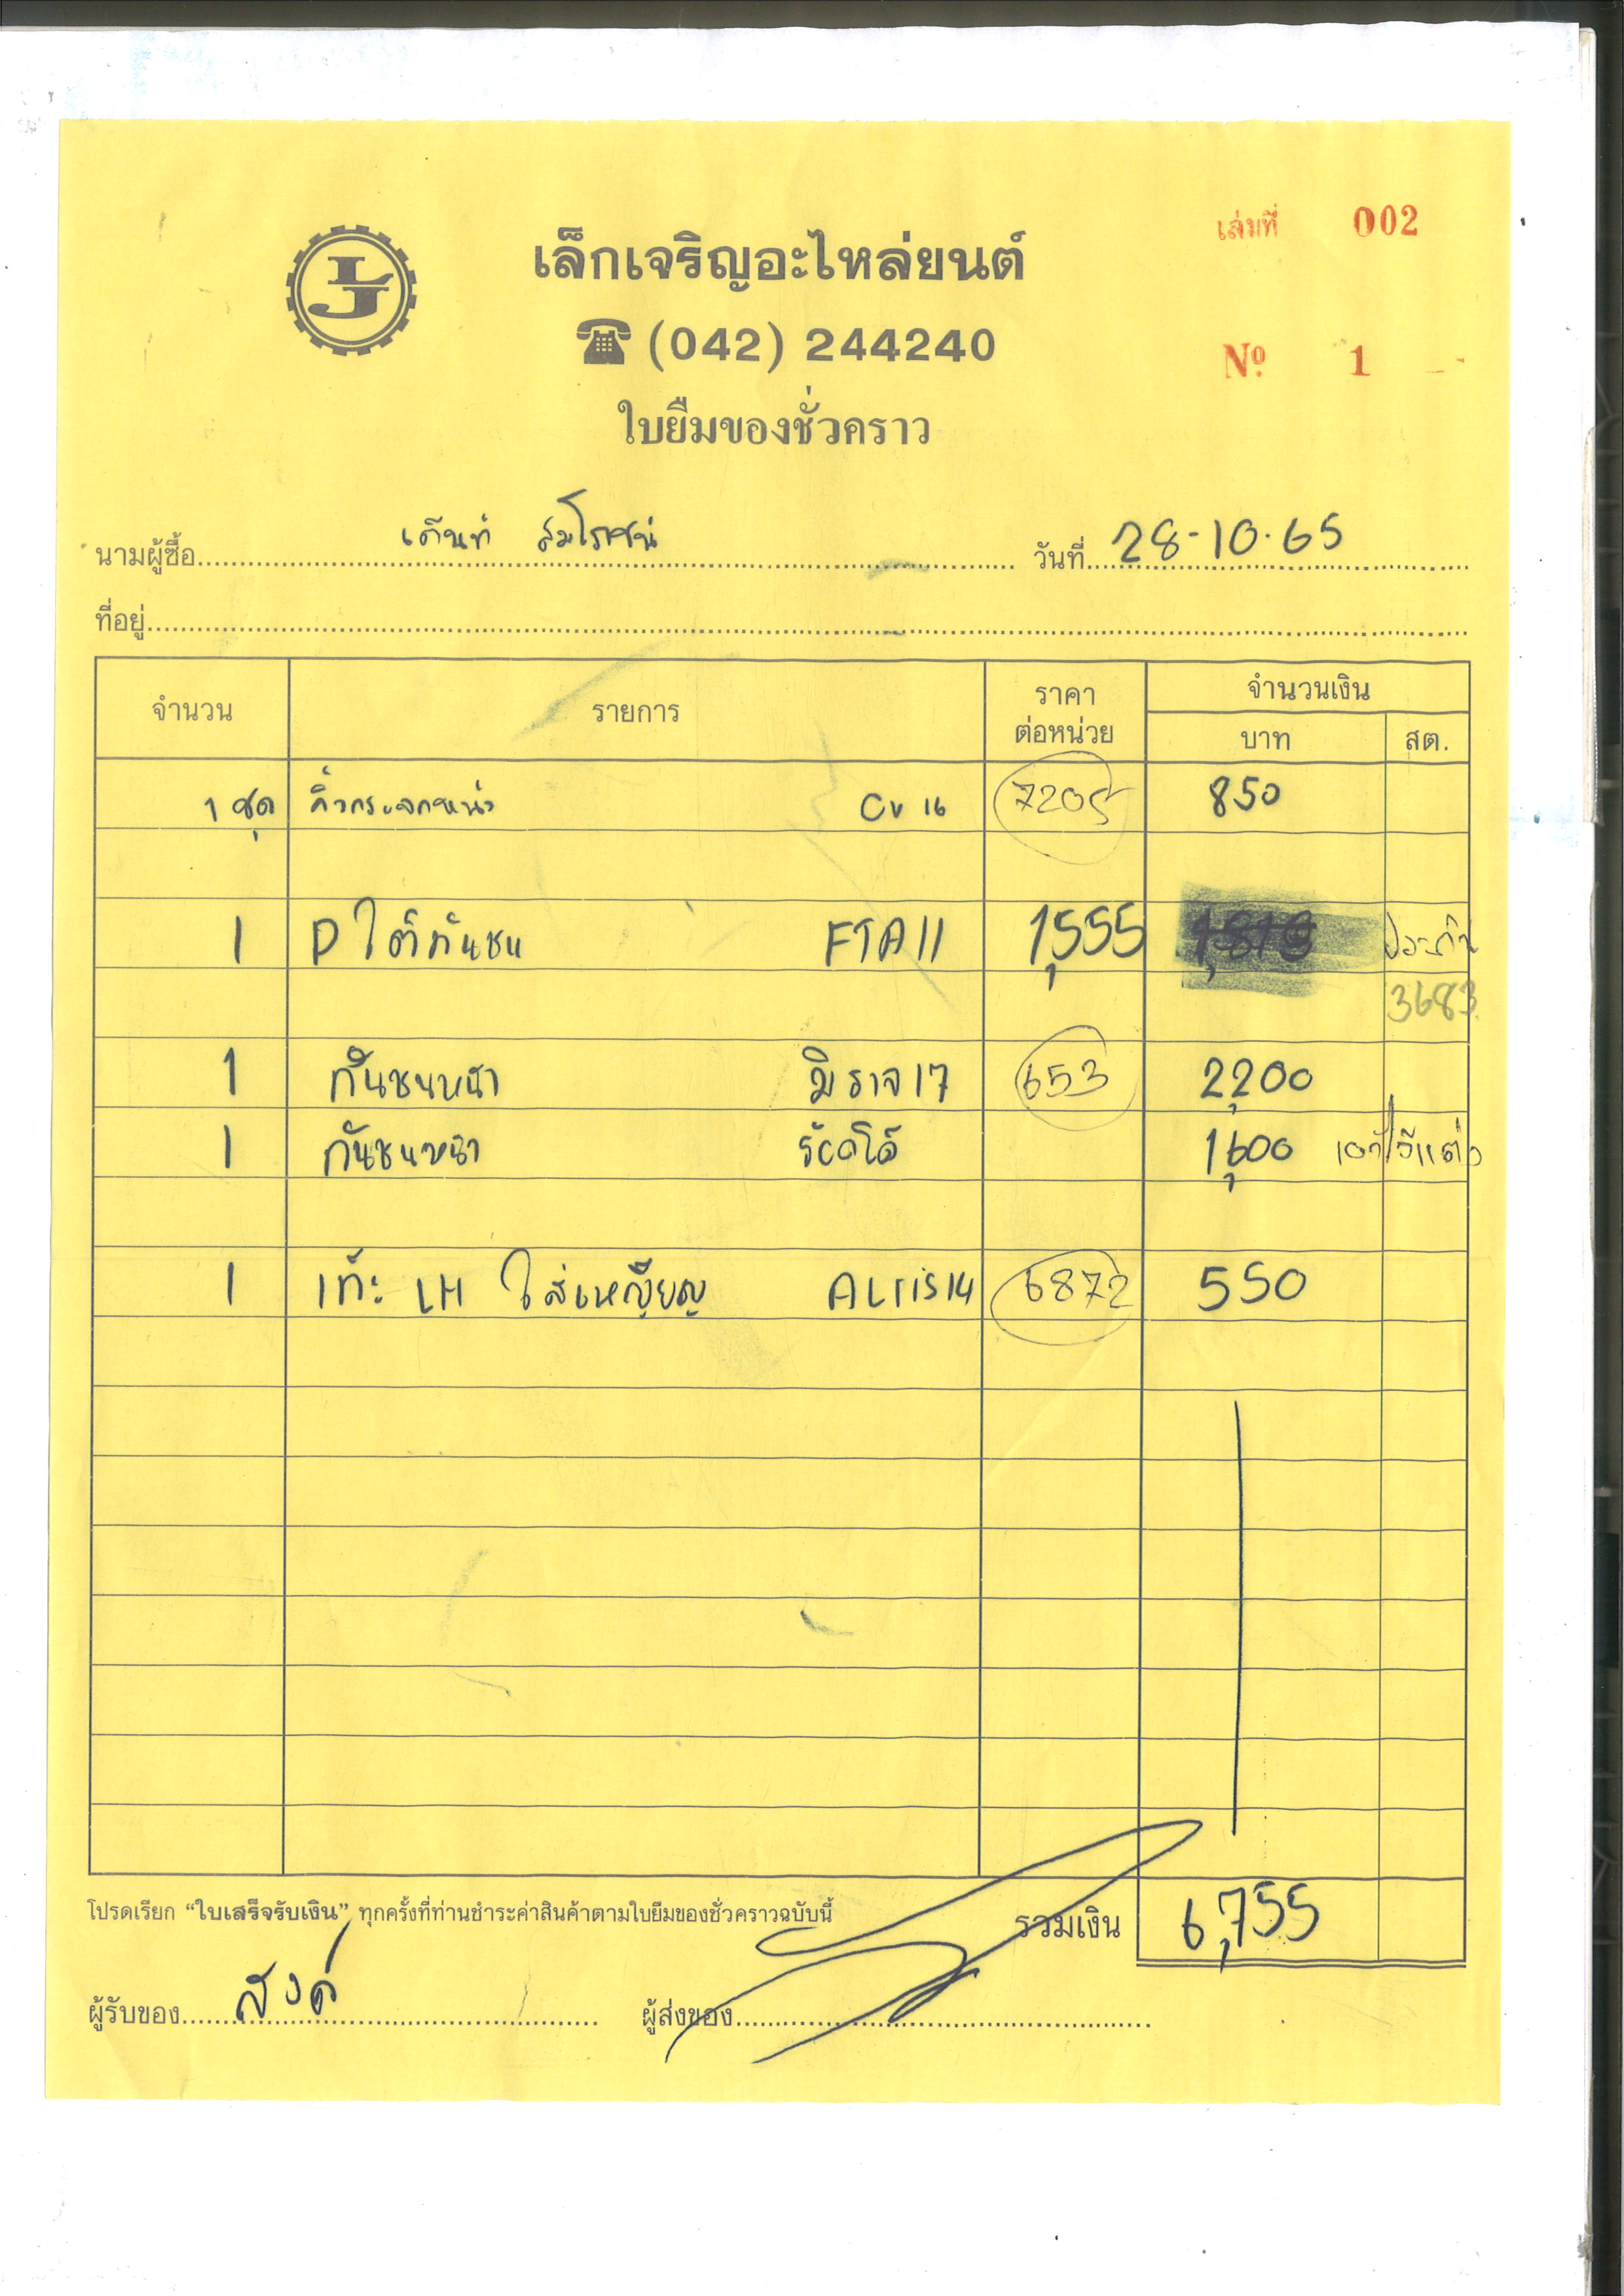 เล่มที่ 002
LJ
เล็กเจริญอะไหล่ยนต์
☎ (042) 244240
Nº 1
ใบยืมของชั่วคราว
นามผู้ซื้อ เต็นท์ สมโรชน์ วันที่ 28-10-65
ที่อยู่
จำนวน รายการ ราคาต่อหน่วย จำนวนเงิน
บาท สต.
1 ชุด คิ้วกระจกหน้า CV 16 7205 850
1 P ใต้กันชน FTA11 1,555 1,818 ประกัน
3683
1 กันชนหน้า มิราจ 17 653 2,200
1 กันชนหน้า รีโว่ได้ 1,600
1 LH ใส่เหญียญ ALTIS14 6872 550
โปรดเรียก “ใบเสร็จรับเงิน” ทุกครั้งที่ท่านชำระค่าสินค้าตามใบยืมของชั่วคราวฉบับนี้ รวมเงิน 6,755
ผู้รับของ ผู้ส่งของ